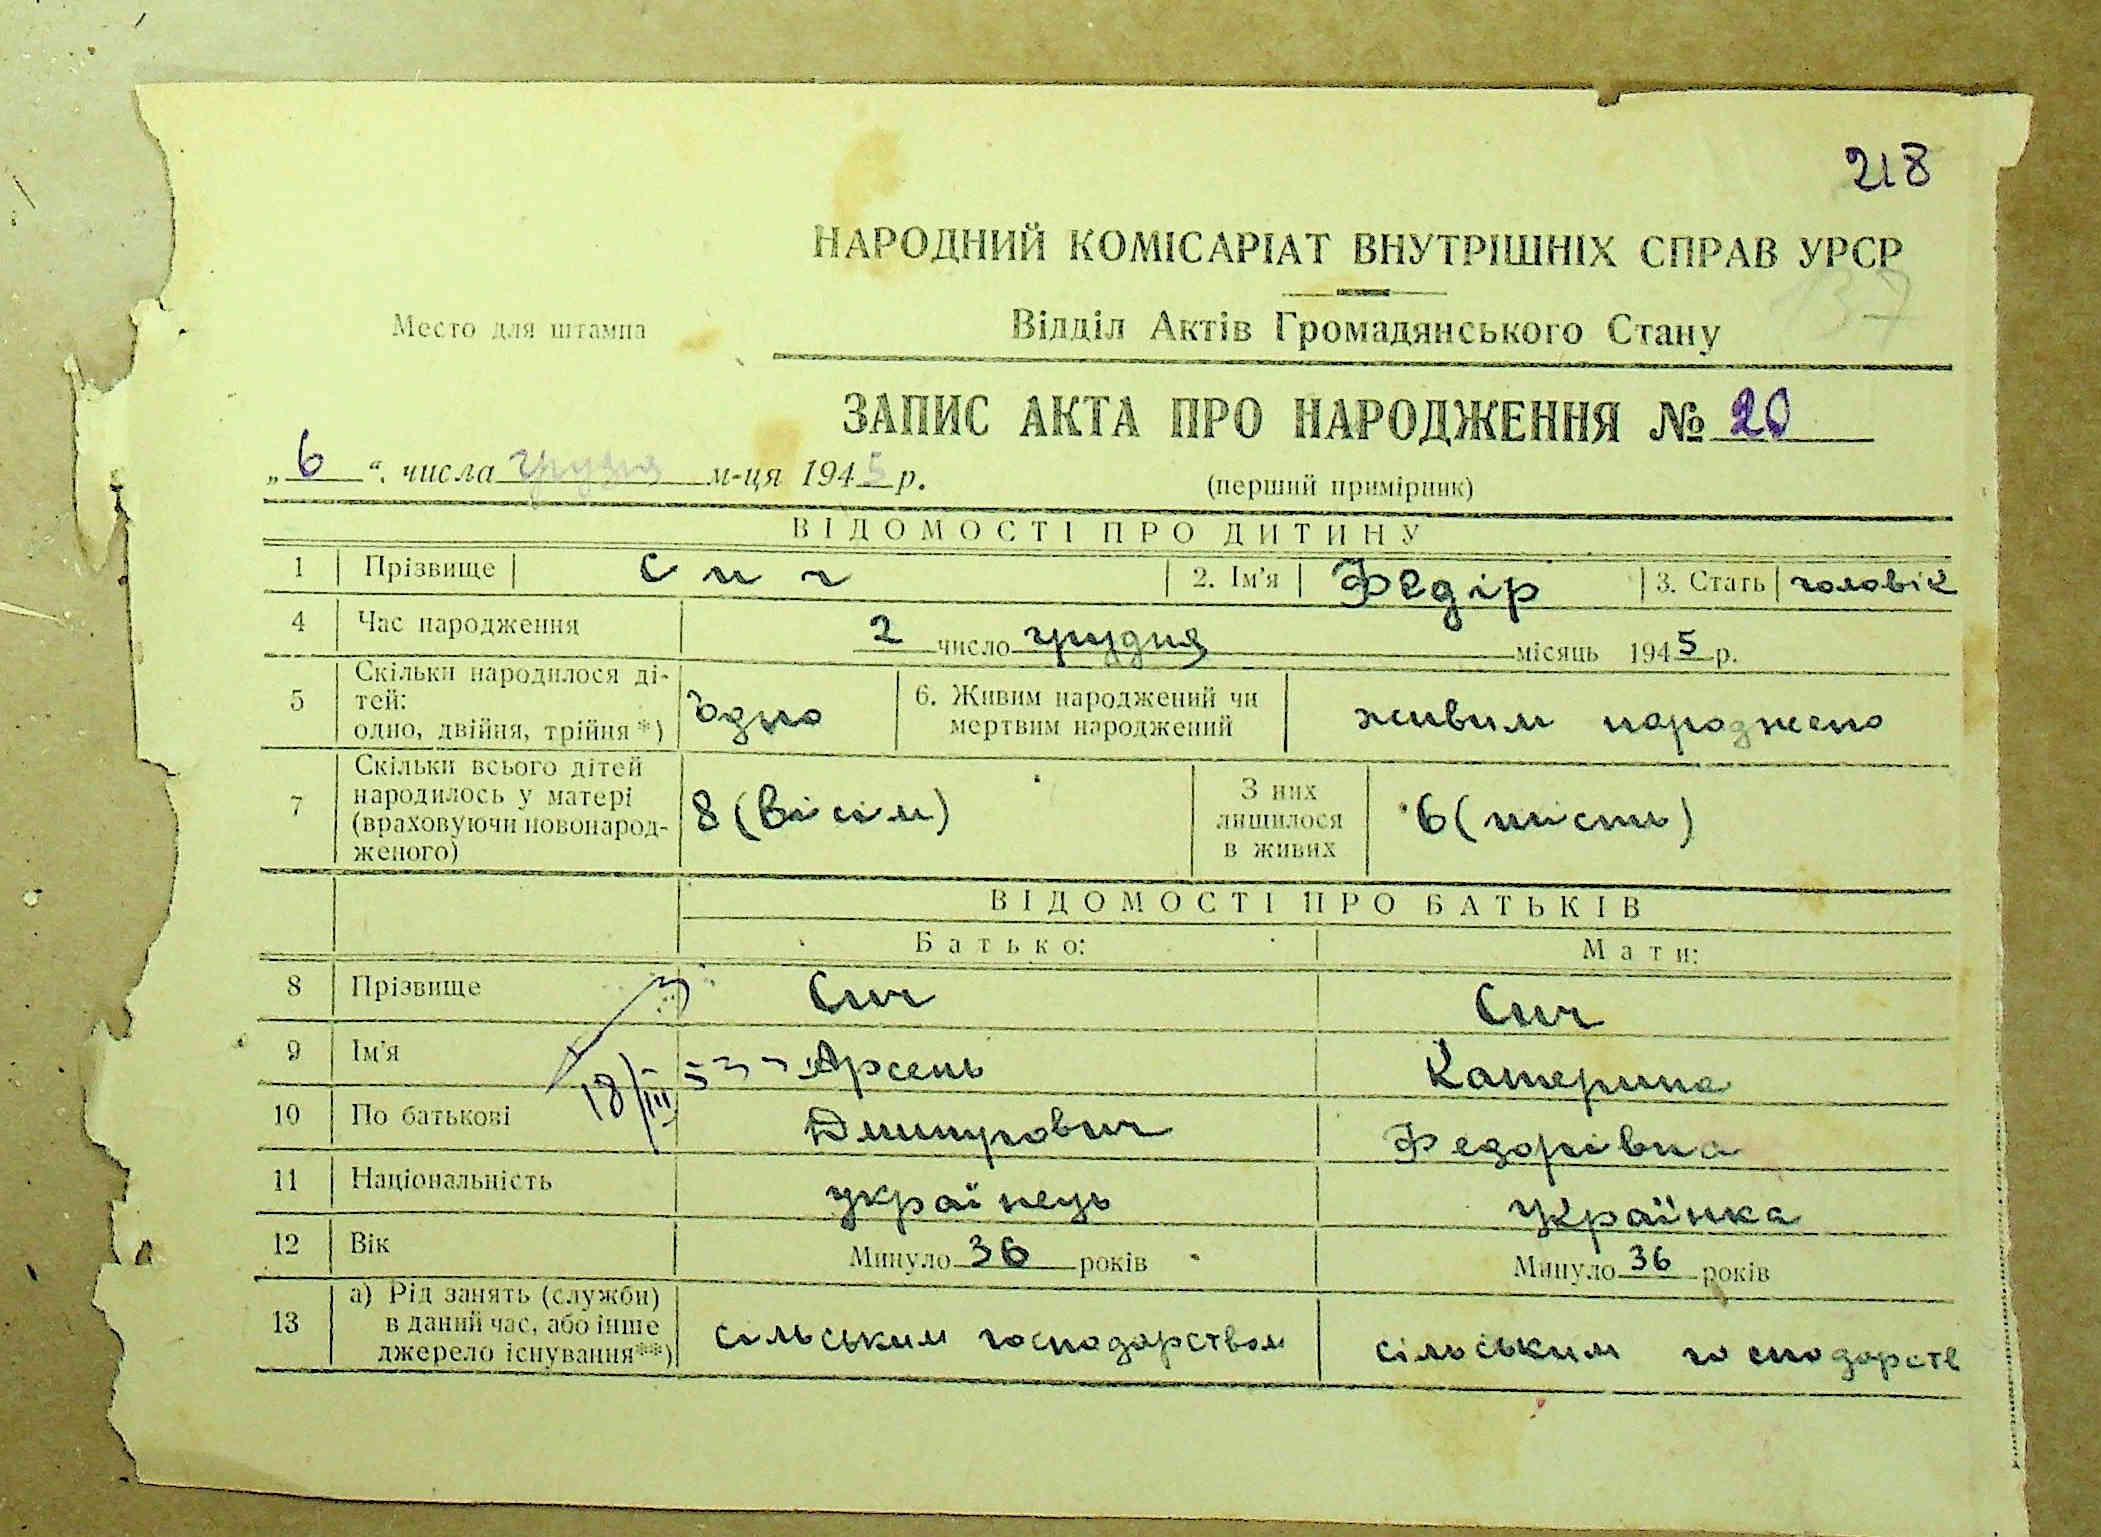 218
НАРОДНИЙ КОМІСАРІАТ ВНУТРІШНІХ СПРАВ УРСР
137
Место для штампа
Відділ Актів Громадянського Стану
ЗАПИС АКТА ПРО НАРОДЖЕННЯ № 20
„ 6 “ числа грудня м-ця 1945 р.
(перший примірник)
ВІДОМОСТІ ПРО ДИТИНУ
1 Прізвище Сич 2. Ім'я Федір 3. Стать чоловік
4 Час народження 2 число грудня місяць 1945 р.
5 Скільки народилося ді-
тей:
одно, двійня, трійня *) Одно 6. Живим народжений чи
мертвим народжений живим народжено
7 Скільки всього дітей
народилось у матері
(враховуючи новонарод-
женого) 8 (вісім) З них
лишилося
в живих 6 (шість)
ВІДОМОСТІ ПРО БАТЬКІВ
Батько: Мати:
8 Прізвище Сич Сич
9 Ім'я Арсень Катерина
18/III 53
10 По батькові Дмитрович Федорівна
11 Національність українець українка
12 Вік Минуло 36 років Минуло 36 років
13 а) Рід занять (служби)
в даний час, або інше
джерело існування**) сільським господарством сільським господарств